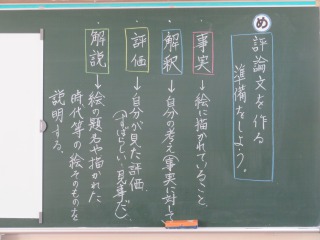 め
評論文を作る
準備をしよう。
事実→絵に描かれていること
解釈→自分の考え(事実に対して)
評価→自分が見た評価。
(すばらしい、見事だ)
解説→絵の題名や描かれた
時代等の絵そのものを
説明する。